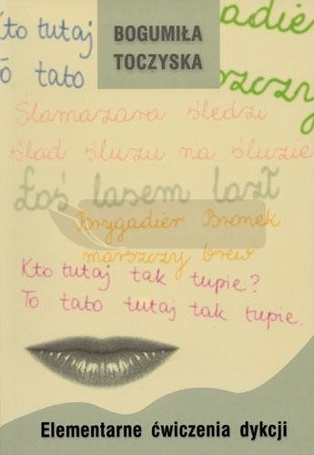 Kto tutaj
To tato
BOGUMIŁA
TOCZYSKA
adie
szczy
Ślamazara śledzi
ślad śluzu na śluzie
Łoś lasem lazł
Brygadier Bronek
marszczy brew
Kto tutaj tak tupie?
To tato tutaj tak tupie.
Elementarne ćwiczenia dykcji